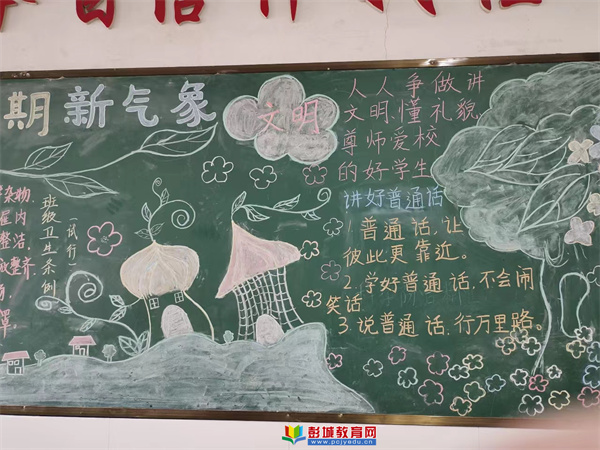 期新气象
文明
人人争做讲
文明,懂礼貌,
尊师爱校
的好学生
讲好普通话
1.普通话,让
彼此更靠近。
2.学好普通话,不会闹
笑话
3.说普通话,行万里路。
班级卫生条例
(试行)
杂物,
屉内
整洁,
彭城教育网
www.pcjyedu.cn